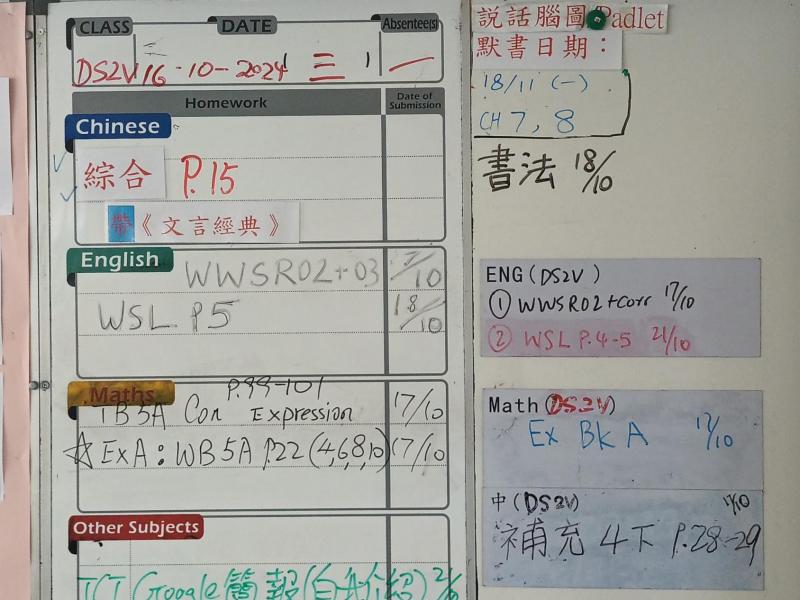 CLASS DATE Absentee(s)
DS2V 16-10-2024 三 一
Homework Date of Submission
Chinese
綜合 P.15
帶《文言經典》
English
WWSR02+03 /10
WSL P5 18/10
Maths
P.99-101
TB5A Con Expression 17/10
☆ ExA: WB5A P.22 (4,6,8,10) 17/10
Other Subjects
ICT Google簡報(自我介紹)
說話腦圖 Padlet
默書日期：
18/11 (一)
CH 7, 8
書法 18/10
ENG (DS2V)
① WWSR02+Corr 17/10
② WSL P.4-5 21/10
Math (DS2V)
Ex Bk A 17/10
中 (DS2V) 17/10
補充 4下 P.28-29